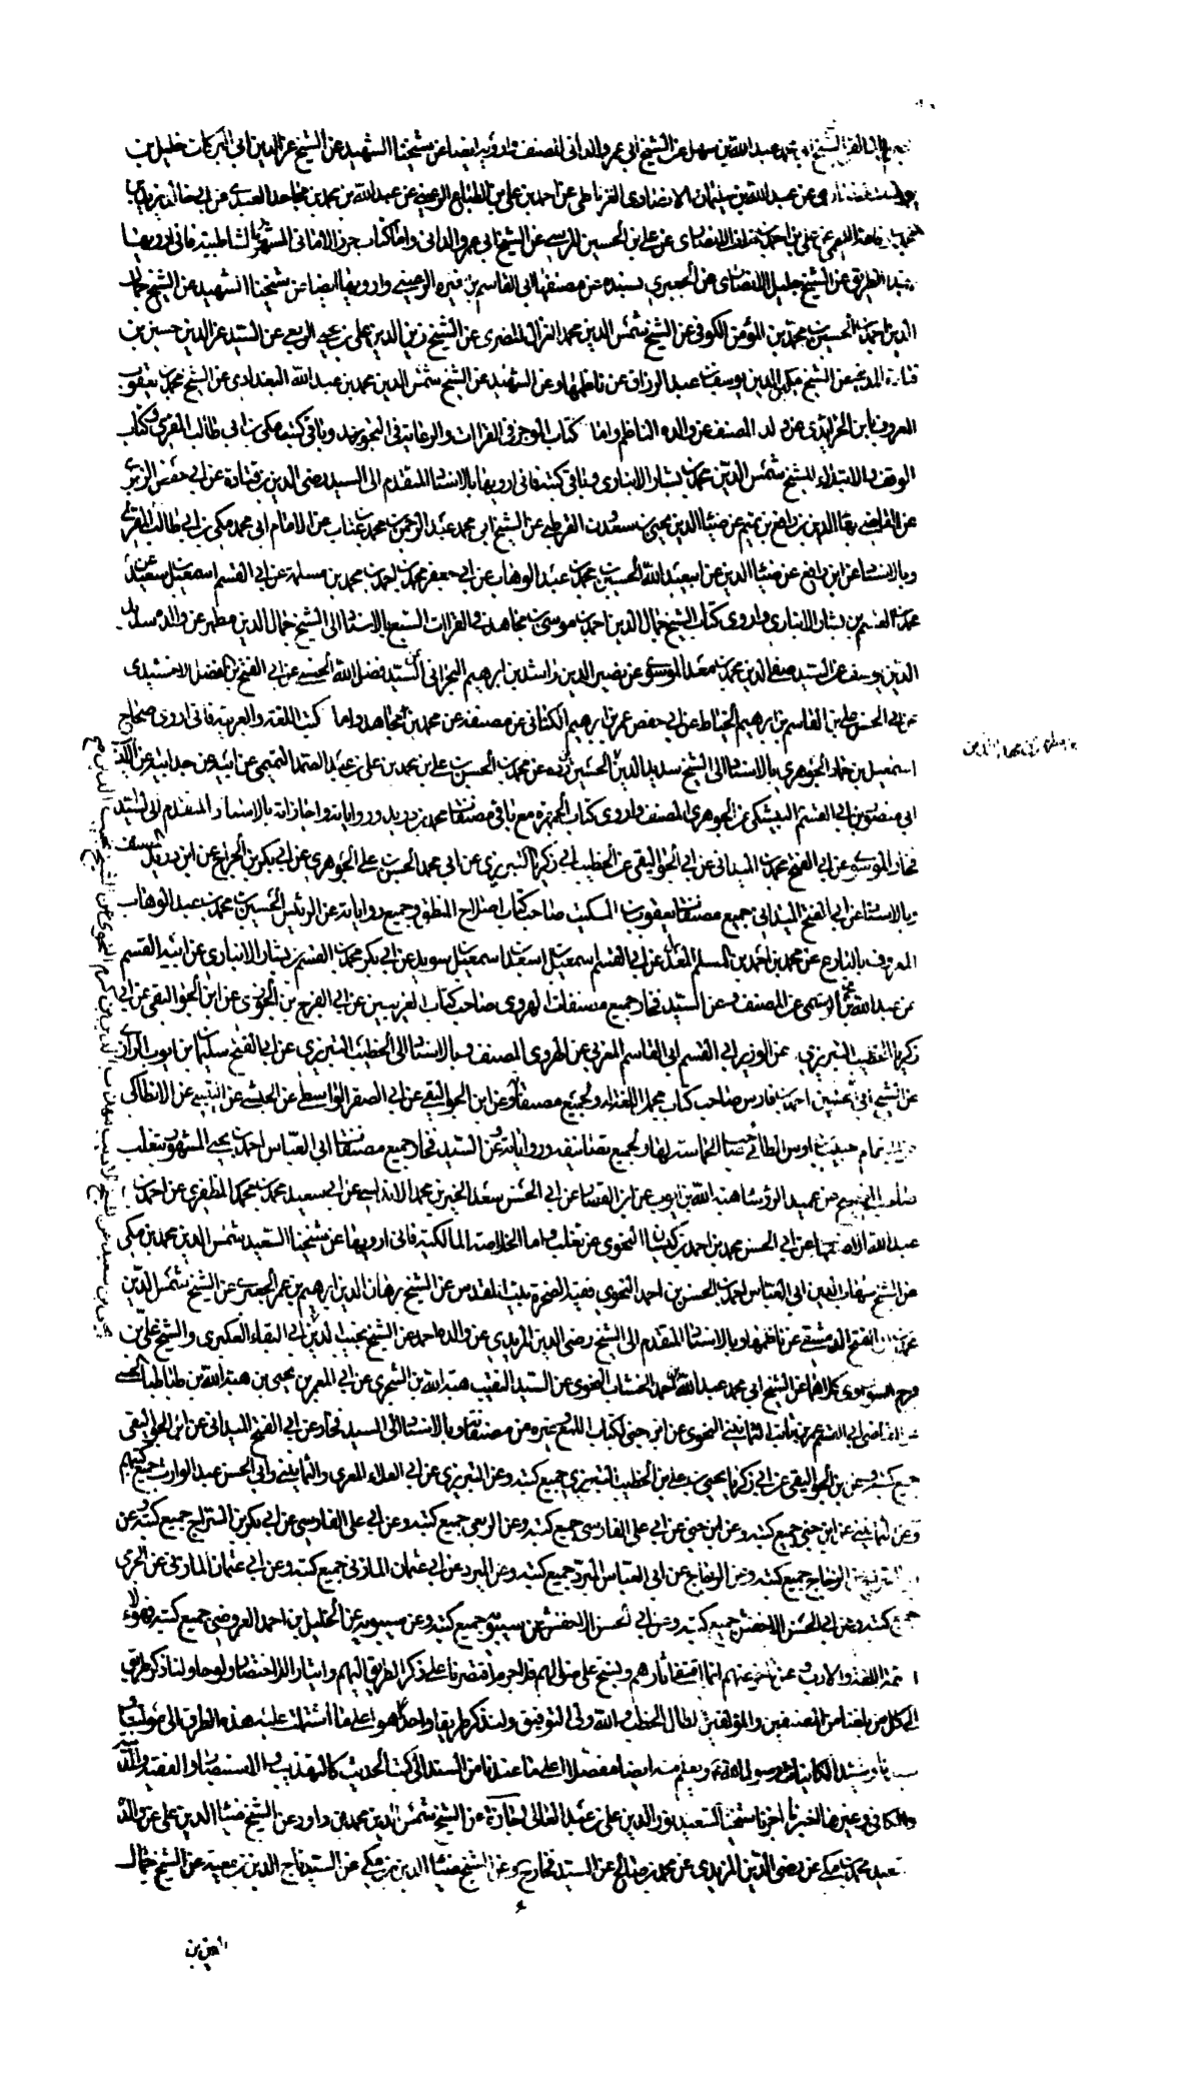 عبد الله بن سهل عن الشيخ ابي عمرو الداني المصنف وارويه ايضا عن شيخنا الشهيد عن الشيخ عز الدين ابي البركات خليل بن
عن عبد الله بن سليمان الانصاري الغرناطي عن احمد بن علي بن الطباع الرعيني عن عبد الله بن محمد بن مجاهد العبدي عن ابي خالد يزيد بن
عن علي بن احمد بن خلف الانصاري عن علي بن الحسين المرسي عن الشيخ ابي عمرو الداني واما كتاب حرز الاماني المشهور بالشاطبية فاني ارويها
بهذا الطريق عن الشيخ خليل الانصاري عن الجعبري بسنده عن مصنفها ابي القاسم بن فيره الرعيني وارويها ايضا عن شيخنا الشهيد عن الشيخ جمال
الدين احمد بن الحسين بن محمد بن المؤمن الكوفي عن الشيخ شمس الدين محمد الغزال المضري عن الشيخ زين الدين علي بن يحيى المربعي عن السيد عز الدين حسين بن
قتادة المدني عن الشيخ مكين الدين يوسف بن عبد الرزاق عن ناظمها وعن الشهيد عن الشيخ شمس الدين محمد بن عبد الله البغدادي عن الشيخ محمد بن يعقوب
المعروف بابن الجرايدي عن ولد المصنف عن والده الناظم واما كتاب الموجز في القراات والرعاية في التجويد وباقي كتب مكي بن ابي طالب المقري وكتاب
الوقف والابتداء للشيخ شمس الدين محمد بن بشار الانباري وباقي كتبه فاني ارويها بالاسناد المتقدم الى السيد رضي الدين بن قتادة عن ابي حفص الزبري
عن القاضي بهاء الدين بن رافع بن تميم عن ضياء الدين يحيى بن سعدون القرطبي عن الشيخ ابي محمد عبد الرحمن بن محمد بن عتاب عن الامام ابي محمد مكي بن ابي طالب المقري
وبالاسناد عن ابن رافع عن ضياء الدين عن ابي عبد الله الحسين بن محمد بن عبد الوهاب عن ابي جعفر محمد بن احمد بن محمد بن مسلمة عن ابي القسم اسمعيل بن سعيد عن
محمد بن القسم بن بشار الانباري واروي كتاب الشيخ جمال الدين احمد بن موسى بن مجاهد في القراات السبع بالاسناد الى الشيخ جمال الدين مطهر عن والده سديد
الدين يوسف عن السيد صفي الدين محمد بن معد الموسوي عن نصير الدين راشد بن ابرهيم البحراني عن السيد فضل الله الحسني عن ابي الفتح بن الفضل الاخشيدي
عن ابي الحسن علي بن القاسم بن ابرهيم الخياط عن ابي حفص عمر بن ابرهيم الكتاني عن مصنفه عن محمد بن مجاهد واما كتب اللغة والعربية فاني اروي صحاح
اسمعيل بن حماد الجوهري بالاسناد الى الشيخ سديد الدين الحسين بن عن محمد بن الحسين بن علي بن محمد بن علي بن عبد الصمد التميمي عن ابيه عن جد ابيه عن الاديب
ابي منصور بن ابي القسم البيشكي عن الجوهري المصنف واروي كتاب الجمهرة مع باقي مصنفات محمد بن دريد ورواياته واجازاته بالاسناد المتقدم الى السيد
فخار الموسوي عن ابي الفتح محمد بن الميداني عن ابن الجواليقي عن الخطيب ابي زكريا التبريزي عن ابي محمد الحسن بن علي الجوهري عن ابي بكر بن الجراح عن ابن دريد المصنف
وبالاسناد عن ابي الفتح الميداني جميع مصنفات يعقوب بن السكيت صاحب كتاب اصلاح المنطق وجميع رواياته عن الرئيس الحسين بن محمد بن عبد الوهاب
المعروف بالبارع عن محمد بن احمد بن المسلم المعدل عن ابي القسم اسمعيل بن اسعد بن اسمعيل بن سويد عن ابي بكر محمد بن القسم بن بشار الانباري عن ابيه القسم
عن عبد الله بن محمد الرستمي عن المصنف وعن السيد فخار جميع مصنفات الهروي صاحب كتاب الغريبين عن ابي الفرج بن الجوزي عن ابن الجواليقي عن ابي
زكريا الخطيب التبريزي عن الوزير ابي القسم ابي القاسم المغربي عن الهروي المصنف وبالاسناد الى الخطيب التبريزي عن ابي الفتح سليمان بن ايوب الرازي
عن الشيخ ابي الحسين احمد بن فارس صاحب كتاب مجمل اللغة لها ولجميع مصنفاته وعن ابن الجواليقي عن ابي الصقر الواسطي عن الحبشي عن التنيسي عن الانطاكي
عن ابي تمام حبيب بن اوس الطائي صاحب الحماسة لها ولجميع تصانيفه ورواياته وعن السيد فخار جميع مصنفات ابي العباس احمد بن يحيى المشهور بثعلب
عن عميد الرؤساء هبة الله بن ايوب عن ابن القصار عن ابي الحسن سعد الخير بن محمد الاندلسي عن ابي سعيد محمد بن محمد المظفري عن احمد بن
عبد الله عن ابي الحسن محمد بن احمد بن كيسان النحوي عن ثعلب واما الخلاصة المالكية فاني ارويها عن شيخنا السعيد شمس الدين محمد بن مكي
عن الشيخ شهاب الدين ابي العباس احمد بن الحسن بن احمد النحوي فقيه الصخرة ببيت المقدس عن الشيخ برهان الدين ابرهيم بن عمر الجعبري عن الشيخ شمس الدين
محمد بن ابي الفتح الدمشقي عن ناظمها وبالاسناد المتقدم الى الشيخ رضي الدين المزيدي عن والده احمد عن الشيخ نجيب الدين ابي البقاء العكبري والشيخ علي بن
فرج السوراوي كلاهما عن الشيخ ابي محمد عبد الله بن احمد الخشاب النحوي عن السيد النقيب هبة الله بن الشجري عن ابي المعمر بن يحيى بن هبة الله بن طباطبا الحسني
عن القاضي ابي القسم عمر بن ثابت الثمانيني النحوي عن ابن جني لكتاب اللمع وغيره من مصنفاته وبالاسناد الى السيد فخار عن ابي الفتح الميداني عن ابن الجواليقي
جميع كتبه وعن بن الجواليقي عن ابي زكريا يحيى بن علي بن الخطيب التبريزي جميع كتبه وعن التبريزي عن ابي العلاء المعري والثمانيني وابي الحسن عبد الوارث جميع كتبهم
وعن الثمانيني عن ابن جني جميع كتبه وعن ابن جني عن ابي علي الفارسي جميع كتبه وعن الربعي جميع كتبه وعن ابي علي الفارسي عن ابي بكر بن السراج جميع كتبه وعن
الزجاج جميع كتبه وعن الزجاج عن ابي العباس المبرد جميع كتبه وعن المبرد عن ابي عثمان المازني جميع كتبه وعن ابي عثمان المازني عن الجرمي
جميع كتبه وعن ابي الحسن الاخفش جميع كتبه وعن ابي الحسن الاخفش عن سيبويه جميع كتبه وعن سيبويه عن الخليل بن احمد العروضي جميع كتبه فهؤلاء
ائمة اللغة والادب وعن تاخر عنهم انما اقتفى آثارهم ونسج على منوالهم فلا جرم اقتصرنا على ذكر الطريق اليهم وايثارا للاختصار ولو حاولنا ذكر طريق
الى كل من بلغنا من المصنفين والمؤلفين لطال الخطب والله ولي التوفيق ولنذكر طريقا واحدا هو اعلى ما اشتملت عليه هذه الطرق الى مولانا
وسيد الكاينات رسول الله ويعلم منه ايضا مفصلا اعلى ما عندنا من السند الى كتب الحديث كالتهذيب والاستبصار والفقيه والمدينة
والكافي وغيرها اخبرنا شيخنا السعيد نور الدين علي بن عبد العالي اجازة عن الشيخ شمس الدين محمد بن داود عن الشيخ ضياء الدين علي عن والده
السعيد محمد بن مكي عن رضي الدين المزيدي عن محمد بن صالح عن السيد فخار وعن الشيخ ضياء الدين بن مكي عن السيد تاج الدين بن معية عن الشيخ جمال
الدين بن